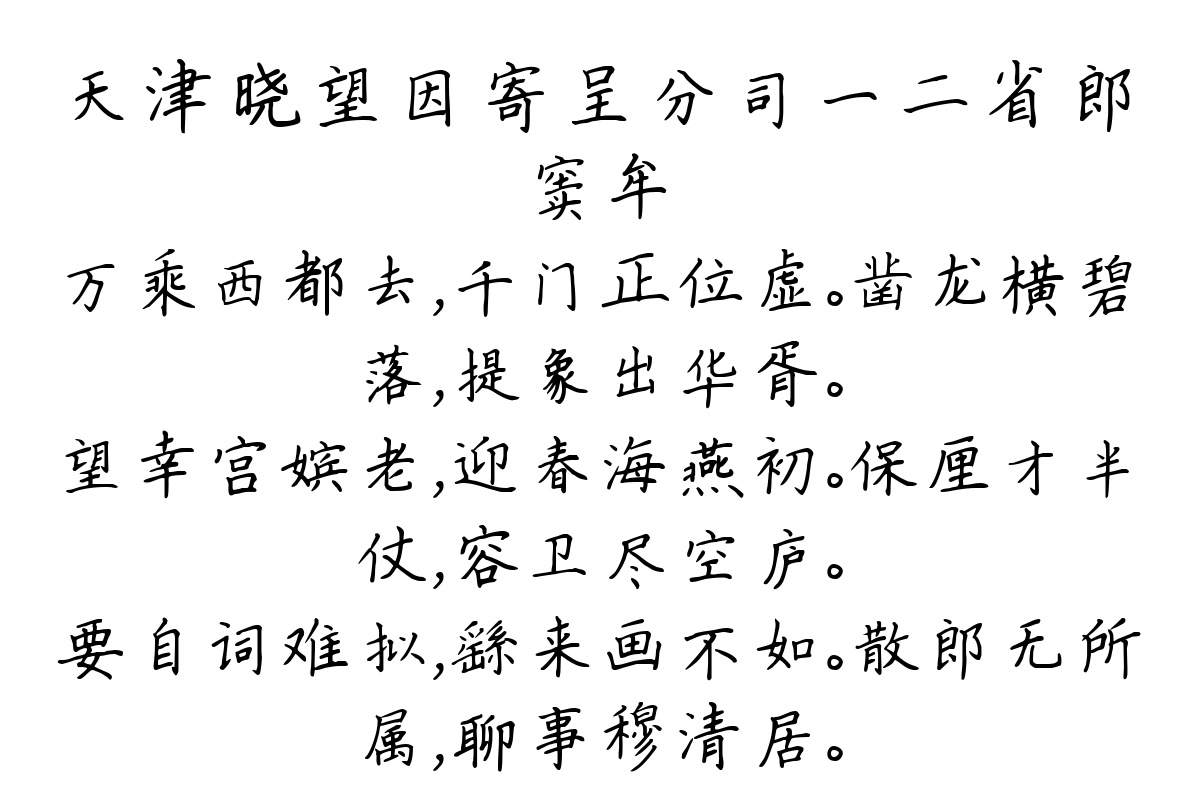 天津晓望因寄呈分司一二省郎
窦牟
万乘西都去,千门正位虚。凿龙横碧
落,提象出华胥。
望幸宫嫔老,迎春海燕初。保厘才半
仗,容卫尽空庐。
要自词难拟,繇来画不如。散郎无所
属,聊事穆清居。